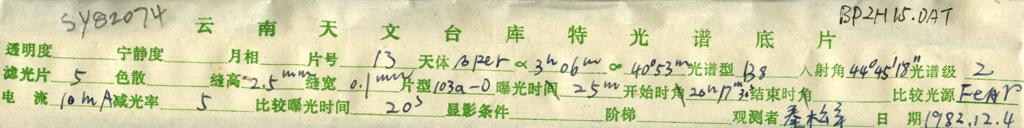 SY82074 BP2H15.DAT
云南天文台库特光谱底片
透明度 宁静度 月相 片号 13 天体 β Per α 3h 06m δ 40°53m 光谱型 B8 入射角 44°45'18" 光谱级 2
滤光片 5 色散 缝高 2.5mm 缝宽 0.1mm 片型 103a-O 曝光时间 25m 开始时角 20h17m30s 结束时角 比较光源 FeAr
电流 10mA 减光率 5 比较曝光时间 20s 显影条件 阶梯 观测者 日期 1982.12.4